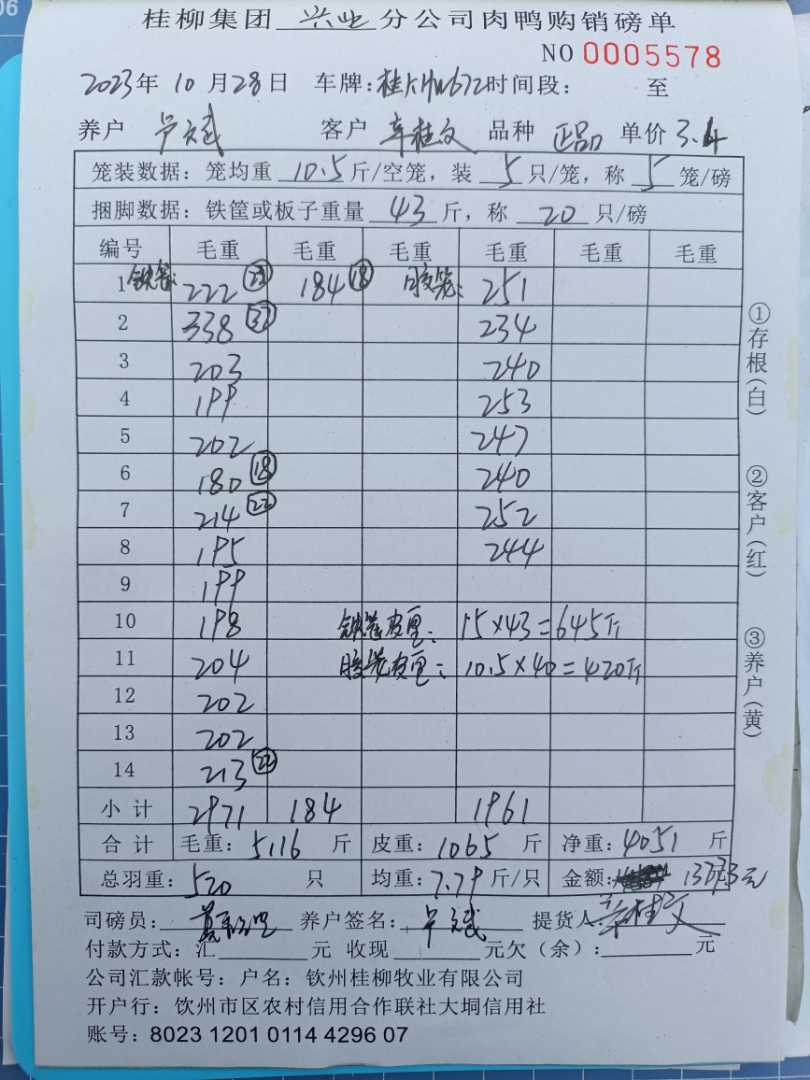 桂柳集团 兴业 分公司肉鸭购销磅单
NO 0005578
2023年 10月28日 车牌: 时间段: 至
养户 客户 辛桂文 品种 正品 单价 3.4
笼装数据: 笼均重 10.5 斤/空笼, 装 5 只/笼, 称 5 笼/磅
捆脚数据: 铁筐或板子重量 43 斤, 称 20 只/磅
编号 毛重 毛重 毛重 毛重 毛重 毛重
1 铁笼: 222 184 ⑱ 胶笼: 251
2 338 234
3 203 240
4 199 253
5 202 247
6 180 ⑱ 240
7 214 ㉒ 252
8 195 244
9 199
10 198 铁笼皮重: 15×43=645斤
11 204 胶笼皮重: 10.5×40=420斤
12 202
13 202
14 213 ㉒
小计 2971 184 1961
合计 毛重: 5116 斤 皮重: 1065 斤 净重: 4051 斤
总羽重: 520 只 均重: 7.79 斤/只 金额: 元
司磅员: 养户签名: 提货人: 辛桂文
付款方式: 汇 元 收现 元欠(余): 元
公司汇款帐号: 户名: 钦州桂柳牧业有限公司
开户行: 饮州市区农村信用合作联社大垌信用社
账号: 8023 1201 0114 4296 07
①存根(白)
②客户(红)
③养户(黄)